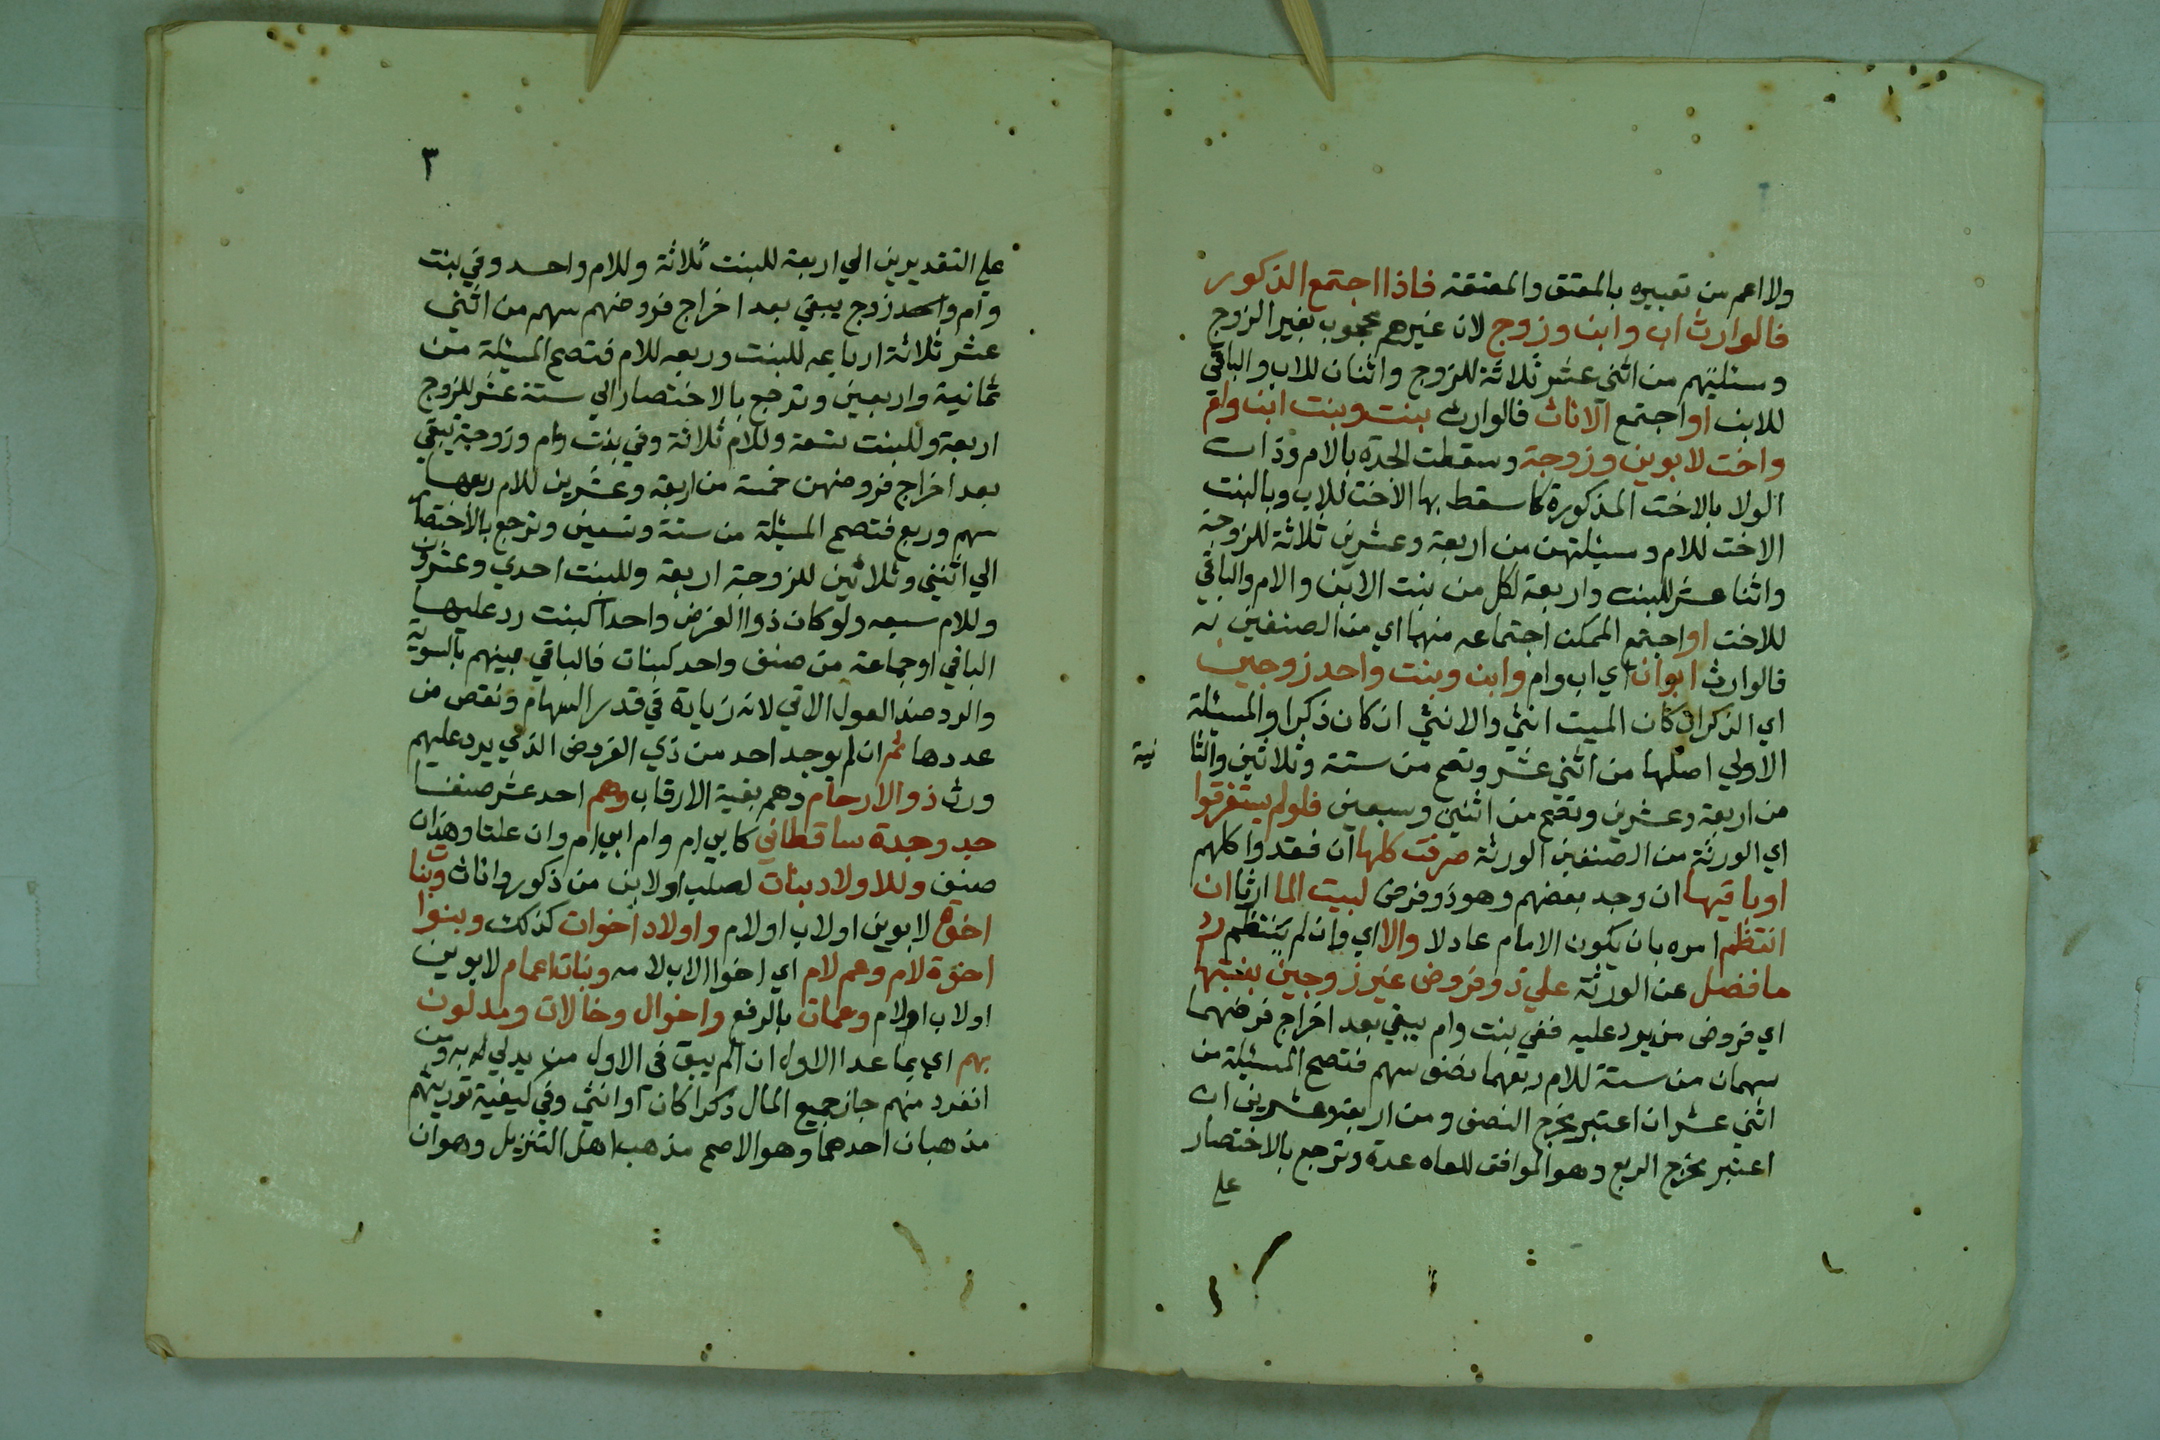 ولا اعم من تعبيره بالمعتق والمعتقة فاذا اجتمع الذكور
فالوارث اب وابن وزوج لان غيرهم محجوب بغير الزوج
ومسئلتهم من اثني عشر ثلاثة للزوج واثنان للاب والباقي
للابن او اجتمع الاناث فالوارث بنت وبنت ابن وام
واخت لابوين وزوجة وسقطت الجدة بالام وذات
الولا بالاخت المذكورة كما سقط بها الاخت للاب وبالبنت
الاخت للام ومسئلتهن من اربعة وعشرين ثلاثة للزوجة
واثنا عشر للبنت واربعة لكل من بنت الابن والام والباقي
للاخت او اجتمع الممكن اجتماعه منهما اي من الصنفين
فالوارث ابوان اي اب وام وابن وبنت واحد زوجين
اي الذكر ان كان الميت انثي والانثي ان كان ذكرا والمسئلة
الاولي اصلها من اثني عشر وتصح من ستة وثلاثين والثا
نية
من اربعة وعشرين وتصح من اثنين وسبعين فلو لم يستغرقوا
اي الورثة من الصنفين الورثة صرفت كلها ان فقدوا كلهم
او باقيها ان وجد بعضهم وهو ذو فرض لبيت الما ارثا ان
انتظم امره بان يكون الامام عادلا والا اي وان لم ينتظم رد
ما فضل عن الورثة علي ذو فروض غير زوجين بنسبتها
اي فروض من يرد عليه ففي بنت وام يبقي بعد اخراج فرضهما
سهمان من ستة للام ربعهما نصف سهم فتصح المسئلة من
اثني عشر ان اعتبر مخرج النصف ومن اربعة وعشرين ان
اعتبر مخرج الربع وهو الموافق للقاعدة وترجع بالاختصار
علي
٣
علي التقديرين الي اربعة للبنت ثلاثة وللام واحد وفي بنت
وام وزوج يبقي بعد اخراج فروضهم سهم من اثني
عشر ثلاثة ارباعه للبنت وربعه للام فتصح المسئلة من
ثمانية واربعين وترجع بالاختصار الي ستة عشر للزوج
اربعة وللبنت تسعة وللام ثلاثة وفي بنت وام وزوجة تبقي
بعد اخراج فروضهن خمسة من اربعة وعشرين للام ربعها
سهم وربع فتصح المسئلة من ستة وتسعين وترجع بالاختصار
الي اثنين وثلاثين للزوجة اربعة وللبنت احدي وعشرون
وللام سبعه ولو كان ذوا الفرض واحدا كبنت رد عليها
الباقي او جماعة من صنف واحد كبنات فالباقي بينهم بالسوية
والرد ضد العول الاتي لانه زياية في قدر السهام ونقص من
عددها ثم ان لم يوجد احد من ذي الفروض الذي يرد عليهم
ورث ذوا الارحام وهم بقية الاقارب وهم احد عشر صنفا
جد وجدة ساقطاني كابي ام وام ابي ام وان علتا وهذان
صنف وللاولاد بنات لصلب او لابن من ذكور واناث وبنات
اخوة لابوين او لاب او لام واولاد اخوات كذلك وبنوا
اخوة لام وعم لام اي اخوا الاب لامه وبنات اعمام لابوين
او لاب او لام وعمات بالرفع واخوال وخالات ومدلون
بهم اي بما عدا الاول ان لم يبق في الاول من يدلي له به ومن
انفرد منهم حاز جميع المال ذكرا كان او انثي وفي كيفية توريثهم
مذهبان احدهما وهو الاصح مذهب اهل التنزيل وهو ان